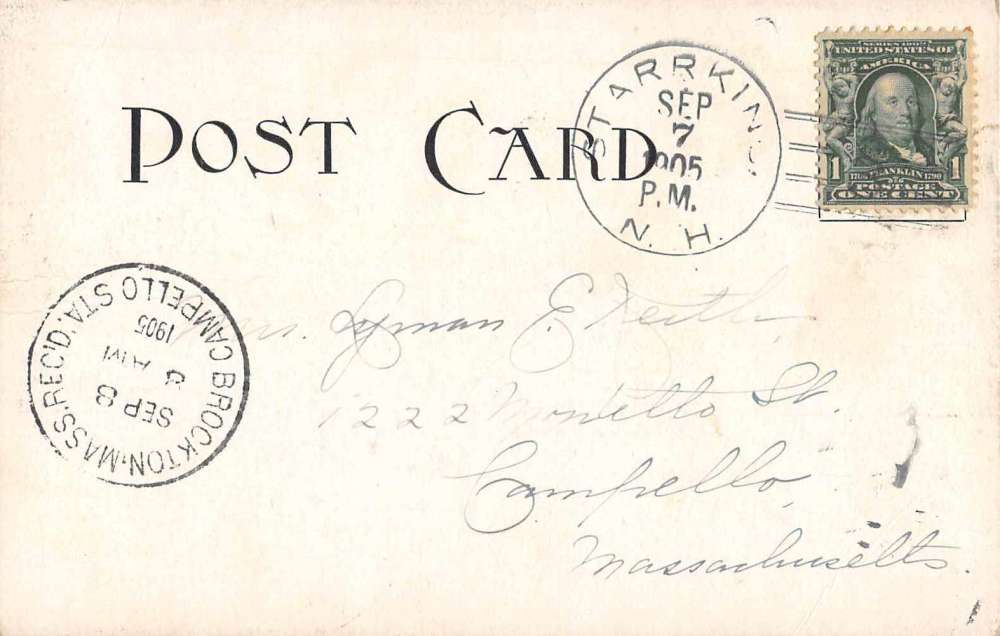 POST CARD
STARRKING
SEP
7
1905
P.M.
N. H.
SERIES 1902
UNITED STATES OF
AMERICA
1 1706 FRANKLIN 1790 1
POSTAGE
ONE CENT
BROCKTON, MASS. REC'D.
CAMPELLO STA.
SEP 8
AM
1905
Mrs. Lyman E. Keith,
1222 Montello St.
Campello,
Massachusetts.